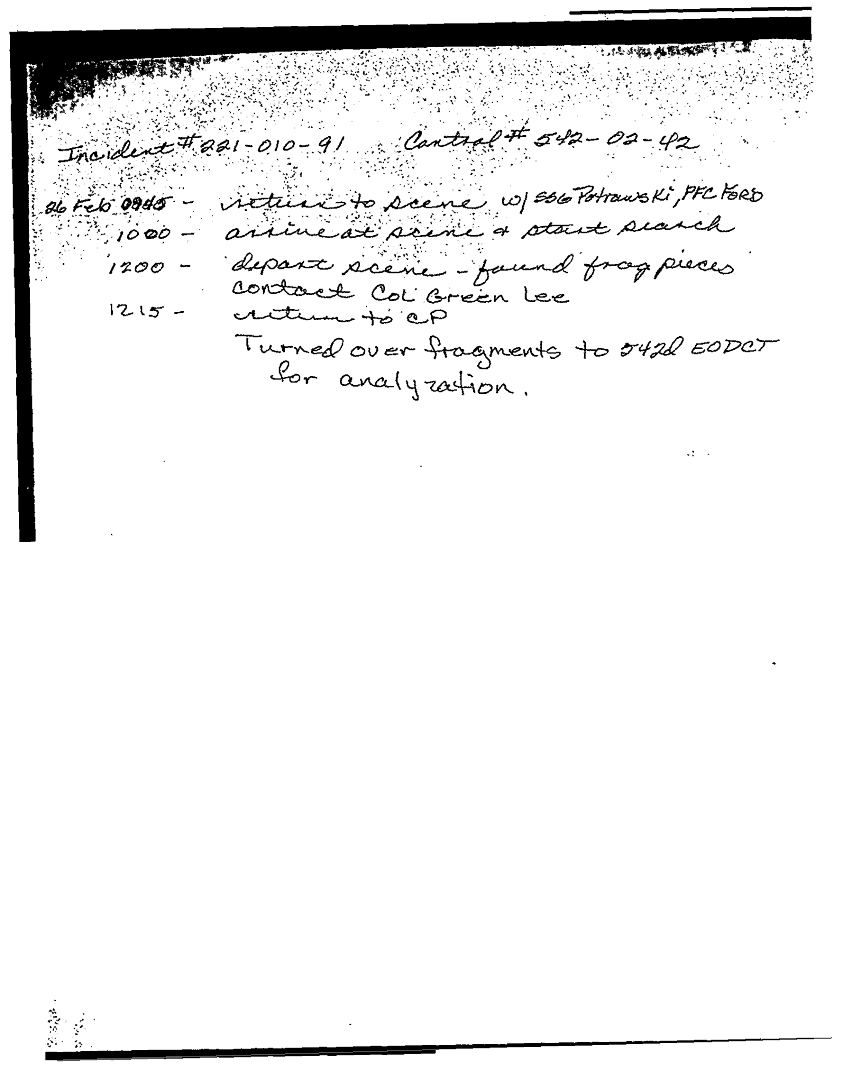 Incident # 221-010-91 Control # 542-02-42
26 Feb 0945 - return to scene w/ SSG Potrawski, PFC FORD
1000 - arrive at scene & start search
1200 - depart scene - found frag pieces
contact Col Green Lee
1215 - return to CP
Turned over fragments to 542d EODCT
for analyzation.